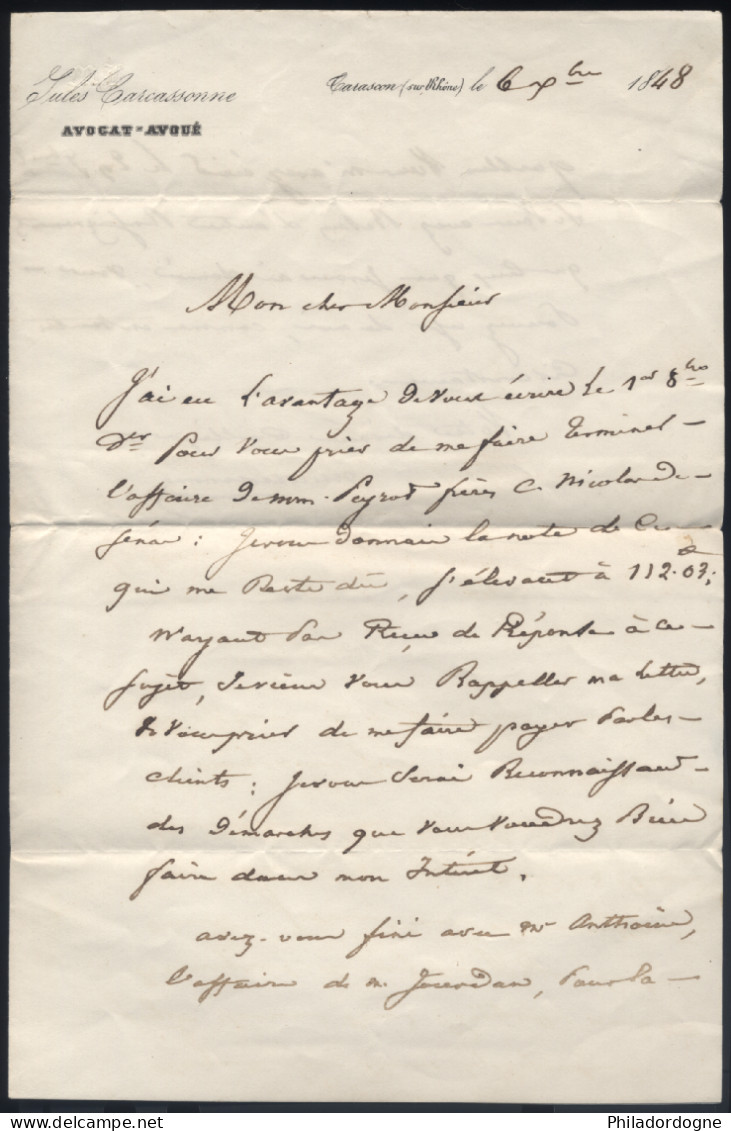 Jules Carcassonne
AVOCAT-AVOUÉ
Tarascon (sur Rhône) le 6 Xbre 1848
Mon cher Monsieur
J'ai eu l'avantage de vous écrire le 1er 8bre
der pour vous prier de me faire terminer
l'affaire de mm. Peyrot frères C. Nicolas de
sénas : je vous donnais la note de Ce
qui me Reste dû, s'élevant à 112.03;
N'ayant pas Reçu de Réponse à ce
sujet, je viens vous Rappeller ma lettre,
& vous prier de me faire payer par les
clients ; je vous serai Reconnaissant
des démarches que vous voudrez Bien
faire dans mon Intérêt.
avez-vous fini avec mr Anthoine,
l'affaire de m. Jourdan, pour la
Philadordogne